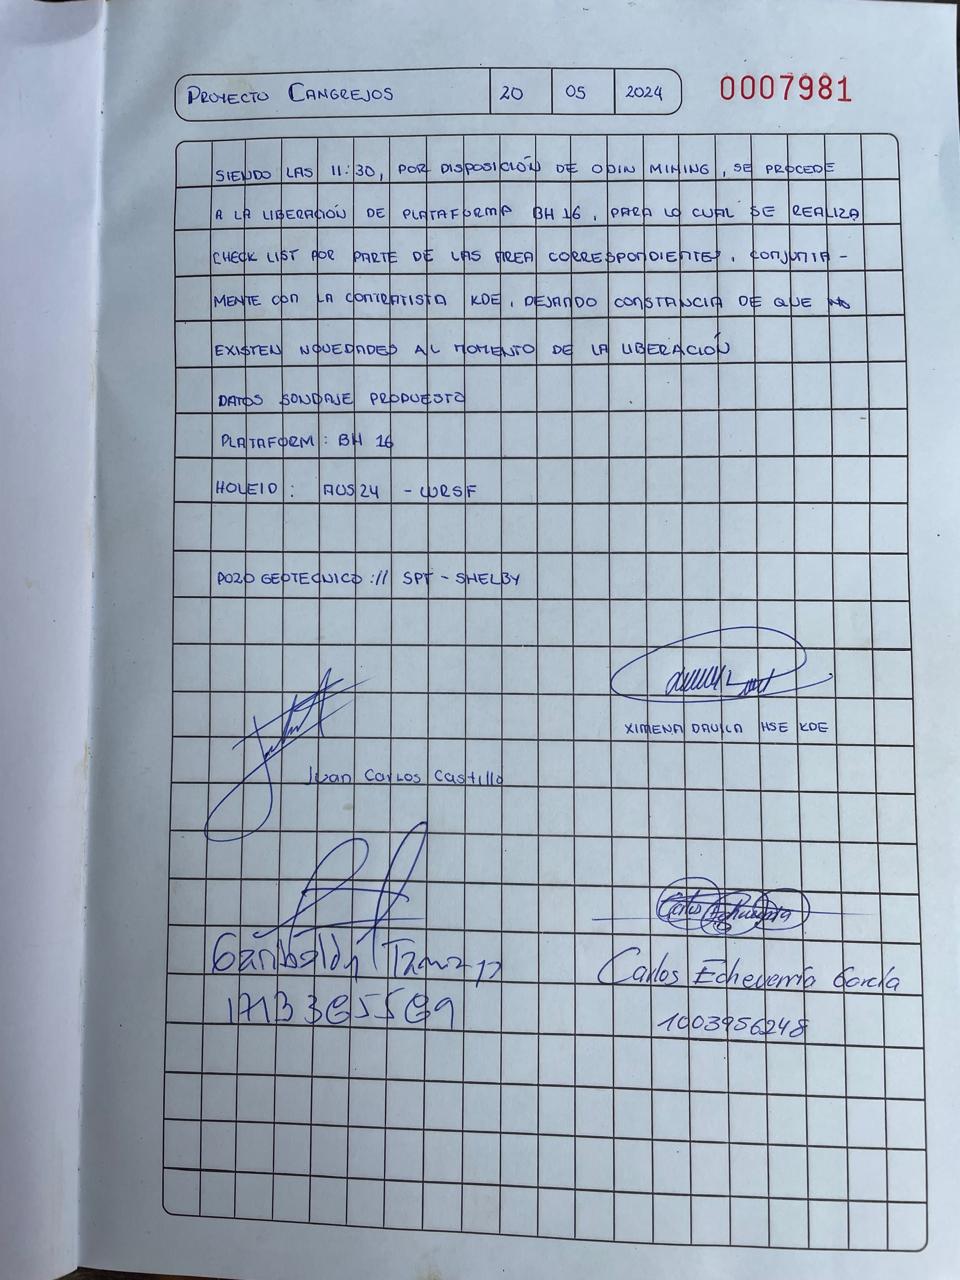 PROYECTO CANGREJOS 20 05 2024 0007981
SIENDO LAS 11:30, POR DISPOSICIÓN DE ODIN MINING, SE PROCEDE
A LA LIBERACIÓN DE PLATAFORMA BH 16, PARA LO CUAL SE REALIZA
CHECK LIST POR PARTE DE LAS AREA CORRESPONDIENTES, CONJUNTA-
MENTE CON LA CONTRATISTA KDE, DEJANDO CONSTANCIA DE QUE NO
EXISTEN NOVEDADES AL MOMENTO DE LA LIBERACIÓN
DATOS SONDAJE PROPUESTO
PLATAFORM: BH 16
HOLEID: AUS24 - WRSF
POZO GEOTECNICO :// SPT - SHELBY
XIMENA DAVILA HSE KDE
Juan Carlos Castillo
Garibaldy
Carlos Echeverría García
1003956248